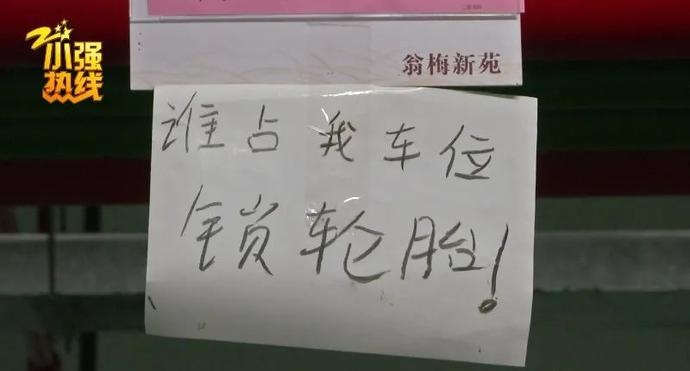 小强
热线
翁梅新苑
谁占我车位
锁轮胎!